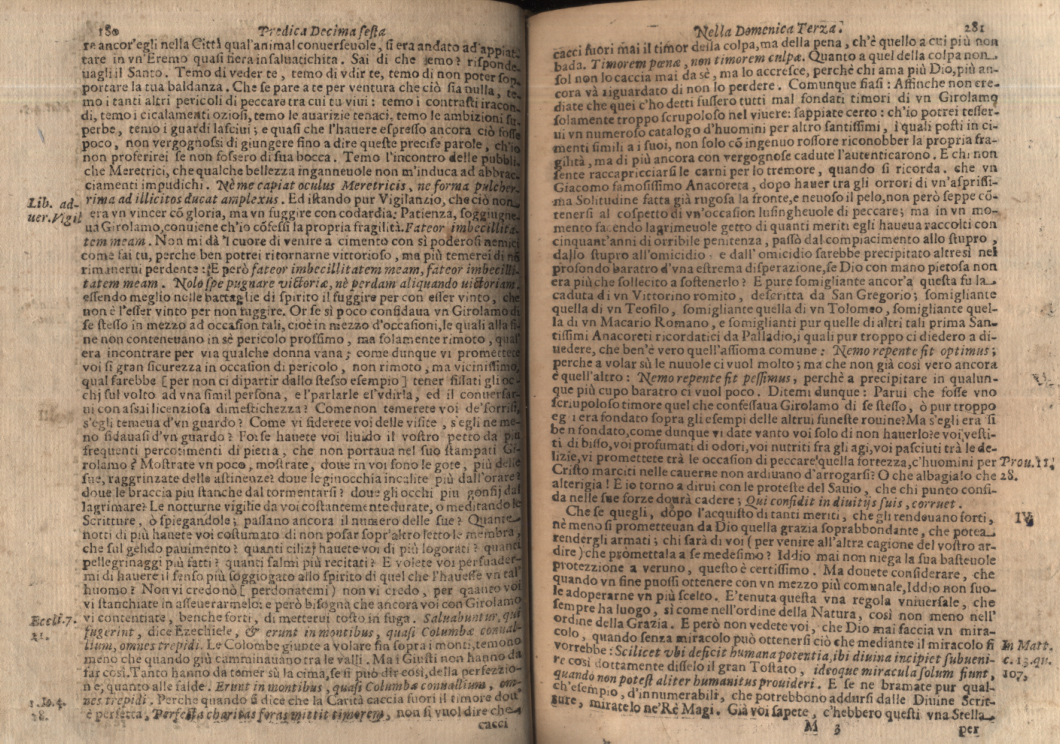 180 Predica Decima sesta
re ancor'egli nella Città qual'animal conuerseuole, si era andato ad appiat-
tare in vn'Eremo quasi fiera insaluatichita. Sai di che temo? risponde-
uagli il Santo. Temo di veder te, temo di vdir te, temo di non poter sop-
portare la tua baldanza. Che se pare a te per ventura che ciò sia nulla, te-
mo i tanti altri pericoli di peccare tra cui tu viui: temo i contrasti iracon-
di, temo i cicalamenti oziosi, temo le auarizie tenaci, temo le ambizioni su-
perbe, temo i guardi lasciui; e quasi che l'hauere espresso ancora ciò fosse
poco, non vergognossi di giungere fino a dire queste precise parole, ch'io
non proferirei se non fossero di sua bocca. Temo l'incontro delle pubbli-
che Meretrici, che qualche bellezza inganneuole non m'induca ad abbrac-
ciamenti impudichi. Nè me capiat oculus Meretricis, ne forma pulcher-
Lib. ad-
uer. Vigil
rima ad illicitos ducat amplexus. Ed istando pur Vigilanzio, che ciò non
era vn vincer cō gloria, ma vn fuggire con codardia: Patienza, soggiugne-
ua Girolamo, conuiene ch'io cōfessi la propria fragilità. Fateor imbecillita-
tem meam. Non mi dà 'l cuore di venire a cimento con sì poderosi nemici
come fai tu, perche ben potrei ritornarne vittorioso, ma più temerei di
rimanerui perdente: E però fateor imbecillitatem meam, fateor imbecilli-
tatem meam. Nolo spe pugnare victoriæ, nè perdam aliquando victoriam.
essendo meglio nelle battaglie di spirito il fuggire per con esser vinto, che
non è l'esser vinto per non fuggire. Or se sì poco confidaua vn Girolamo di
se stesso in mezzo ad occasion tali, cioè in mezzo d'occasioni, le quali alla fi-
ne non conteneuano in sè pericolo prossimo, ma solamente rimoto, qual'
era incontrare per via qualche donna vana; come dunque vi promettete
voi sì gran sicurezza in occasion di pericolo, non rimoto, ma vicinissimo,
qual sarebbe [ per non ci dipartir dallo stesso esempio ] tener fissati gli oc-
chi sul volto ad vna simil persona, e l'parlarle e l'vdirla, ed il conuersar-
ui con assai licenziosa dimestichezza? Come non temerete voi de' sorrisi,
s'egli temeua d'vn guardo? Come vi fiderete voi delle visite, s'egli ne me-
no fidauasi d'vn guardo? Forse hauete voi liuido il vostro petto da più
frequenti percotimenti di pietra, che non portaua nel suo stampati Gi-
rolamo? Mostrate vn poco, mostrate, doue in voi sono le gote, più delle
sue, raggrinzate dalle astinenze? doue le ginocchia incalite più dall'orare?
doue le braccia più stanche dal tormentarsi? doue gli occhi più gonfij dal
lagrimare? Le notturne vigilie da voi costantemente durate, o meditando le
Scritture, ò spiegandole; passano ancora il numero delle sue? Quante
notti di più hauete voi costumato di non posar sopr'altro letto le membra,
che sul gelido pauimento? quanti cilizj hauete voi di più logorati? quanti
pellegrinaggi più fatti? quanti salmi più recitati? E volete voi persuader-
mi di hauere il senso più soggiogato allo spirito di quel che l'hauesse vn tal
huomo? Non vi credonò [ perdonatemi ] non vi credo, per quanto voi
vi stanchiate in asseuerarmelo: e però bisogna che ancora voi con Girolamo
Eccli. 7.
21.
vi contentiate, benche forti, di metterui tosto in fuga. Saluabuntur, qui
fugerint, dice Ezechiele, & erunt in montibus, quasi Columbæ conual-
lium, omnes trepidi. Le Colombe giunte a volare fin sopra i monti, temono
meno che quando già camminauano tra le valli. Ma i Giusti non hanno da
far così. Tanto hanno da temer sù la cima, se si può dir così, della perfezzio-
ne, quanto alle falde. Erunt in montibus, quasi Columbæ conuallium, om-
nes trepidi. Perche quando si dice che la Carità caccia fuori il timore dou'
1. Io. 4.
18.
è perfetta, Perfecta charitas foras mittit timorem, non si vuol dire che
cacci
Nella Domenica Terza. 281
cacci fuori mai il timor della colpa, ma della pena, ch'è quello a cui più non
bada. Timorem penæ, non timorem culpæ. Quanto a quel della colpa non
sol non lo caccia mai da sè, ma lo accresce, perchè chi ama più Dio, più an-
cora và riguardato di non lo perdere. Comunque siasi: Affinche non cre-
diate che quei c'ho detti fussero tutti mal fondati timori di vn Girolamo
solamente troppo scrupoloso nel viuere: sappiate certo: ch'io potrei tesser-
ui vn numeroso catalogo d'huomini per altro santissimi, i quali posti in ci-
menti simili a i suoi, non solo cō ingenuo rossore riconobber la propria fra-
gilità, ma di più ancora con vergognose cadute l'autenticarono. E chi non
sente raccapricciarsi le carni per lo tremore, quando si ricorda. che vn
Giacomo famosissimo Anacoreta, dopo hauer tra gli orrori di vn'asprissi-
ma Solitudine fatta già rugosa la fronte, e neuoso il pelo, non però seppe cō-
tenersi al cospetto di vn'occasion lusingheuole di peccare; ma in vn mo-
mento facendo lagrimeuole getto di quanti meriti egli haueua raccolti con
cinquant'anni di orribile penitenza, passò dal compiacimento allo stupro,
dallo stupro all'omicidio, e dall'omicidio sarebbe precipitato altresì nel
profondo baratro d'vna estrema disperazione, se Dio con mano pietosa non
era più che sollecito a sostenerlo? E pure somigliante ancor'a questa fù la
caduta di vn Vittorino romito, descritta da San Gregorio; somigliante
quella di vn Teofilo, somigliante quella di vn Tolomeo, somigliante quel-
la di vn Macario Romano, e somiglianti pur quelle di altri tali prima San-
tissimi Anacoreti ricordatici da Palladio, i quali pur troppo ci diedero a di-
uedere, che ben'è vero quell'assioma comune: Nemo repente fit optimus;
perche a volar sù le nuuole ci vuol molto; ma che non già così vero ancora
è quell'altro: Nemo repente fit pessimus, perchè a precipitare in qualun-
que più cupo baratro ci vuol poco. Ditemi dunque: Parui che fosse vno
scrupoloso timore quel che confessaua Girolamo di se stesso, ò pur troppo
egli era fondato sopra gli esempi delle altrui funeste rouine? Ma s'egli era sì
ben fondato, come dunque vi date vanto voi solo di non hauerlo? e voi, vesti-
ti di bisso, voi profumati di odori, voi nutriti fra gli agi, voi pasciuti trà le de-
lizie, vi promettete trà le occasion di peccare quella fortezza, c'huomini per
Prou. 11.
28.
Cristo marciti nelle cauerne non ardiuano d'arrogarsi? O che albagia! o che
alterigia! E io torno a dirui con le proteste del Sauio, che chi punto confi-
da nelle sue forze dourà cadere; Qui confidit in diuitijs suis, corruet.
IV.
Che se quegli, dopo l'acquisto di tanti meriti, che gli rendeuano forti,
nè meno si prometteuan da Dio quella grazia soprabbondante, che potea
rendergli armati; chi sarà di voi ( per venire all'altra cagione del vostro ar-
dire ) che promettala a se medesimo? Iddio mai non niega la sua basteuole
protezzione a veruno, questo è certissimo. Ma douete considerare, che
quando vn fine puossi ottenere con vn mezzo più comunale, Iddio non suo-
le adoperarne vn più scelto. E' tenuta questa vna regola vniuersale, che
sempre ha luogo, sì come nell'ordine della Natura, così non meno nell'
ordine della Grazia. E però non vedete voi, che Dio mai faccia vn mira-
colo, quando senza miracolo può ottenersi ciò che mediante il miracolo si
In Matt.
c. 13. qu.
107.
vorrebbe: Scilicet vbi deficit humana potentia, ibi diuina incipiet subueni-
re così dottamente disselo il gran Tostato, ideoque miracula solum fiunt,
quando non potest aliter humanitus prouideri. E se ne bramate pur qual-
ch'esempio, d'innumerabili, che potrebbono addursi dalle Diuine Scrit-
ture, miratelo ne' Rè Magi. Già voi sapete, c'hebbero questi vna Stella
M 3 per